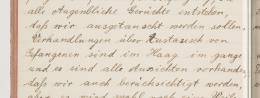 alle Augenblicke Gerücht entstehen
daß wir ausgetauscht werden sollen.
Verhandlungen über Austausch von
Gefangenen sind im Haag im gange
und es sind alle Aussichten vorhanden,
daß wir auch berücksichtigt werden,